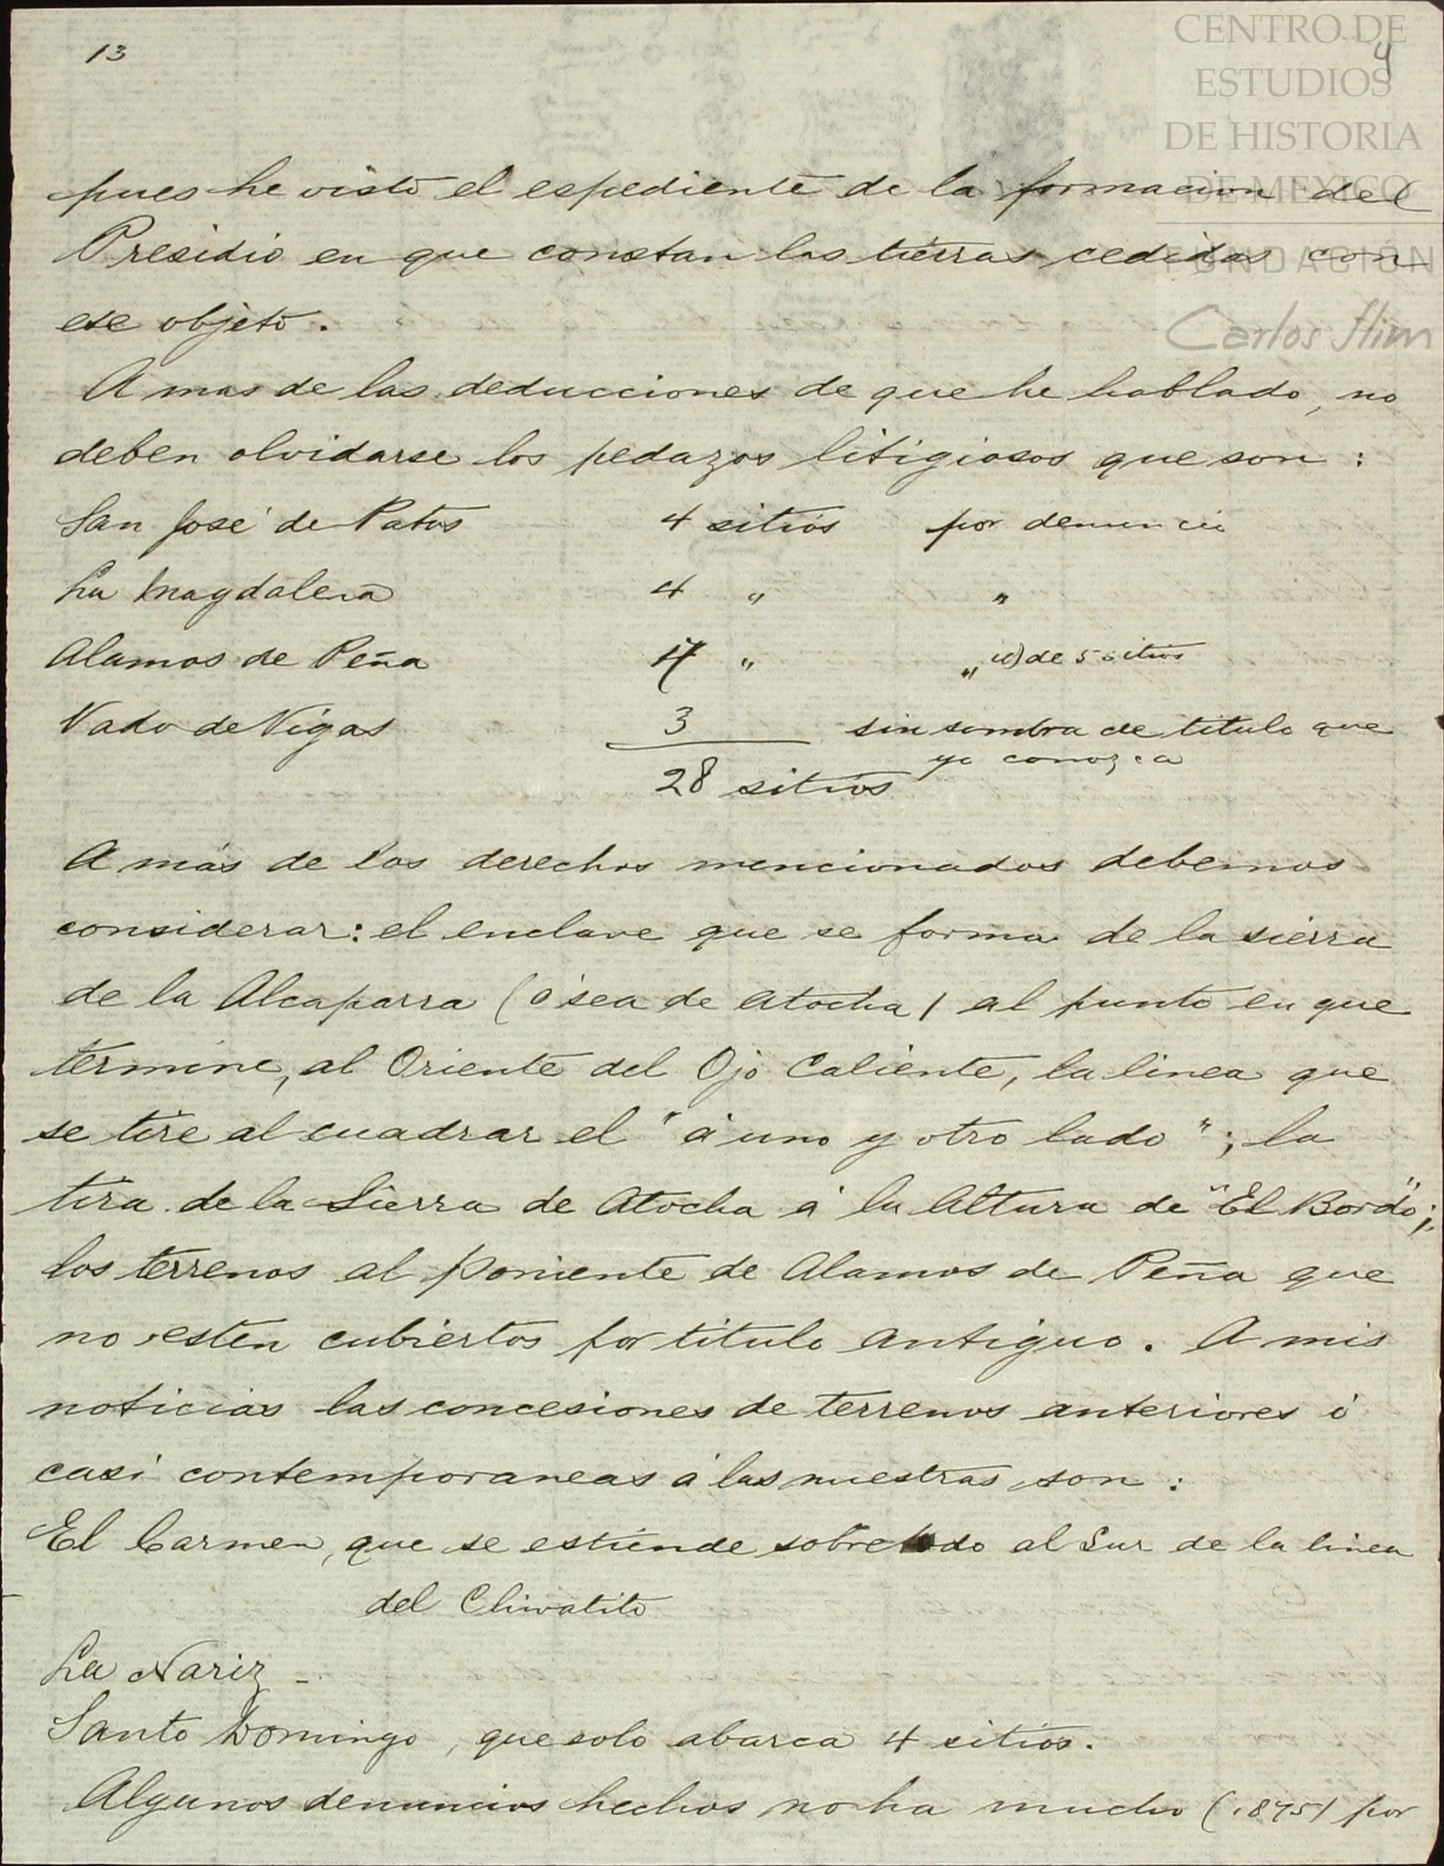 13
4
CENTRO DE
ESTUDIOS
DE HISTORIA
DE MEXICO
FUNDACIÓN
Carlos Slim
pues he visto el espediente de la formacion del
Presidio en que constan las tierras cedidas con
ese objeto.
A mas de las deducciones de que he hablado, no
deben olvidarse los pedazos litigiosos que son:
San José de Patos 4 sitios por denuncio
La Magdalena 4 " "
Alamos de Peña 17 " " id de 5 sitios
Vado de Vigas 3 sin sombra de titulo que
yo conozca
28 sitios
A más de los derechos mencionados debemos
considerar: el enclave que se forma de la sierra
de la Alcaparra (ó sea de Atocha) al punto en que
termine, al Oriente del Ojo Caliente, la linea que
se tire al cuadrar el "á uno y otro lado"; la
tira de la Sierra de Atocha á la Altura de "El Bordo";
los terrenos al poniente de Alamos de Peña que
no esten cubiertos por titulo antiguo. A mis
noticias las concesiones de terrenos anteriores ó
casi contemporaneas á las nuestras, son:
El Carmen, que se estiende sobretodo al Sur de la linea
del Chivatito
La Nariz -
Santo Domingo, que solo abarca 4 sitios.
Algunos denuncios hechos no ha mucho (1895) por